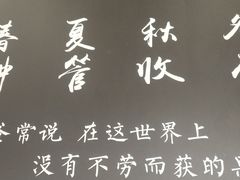 春种
夏管
秋收
常说 在这世界上
没有不劳而获的